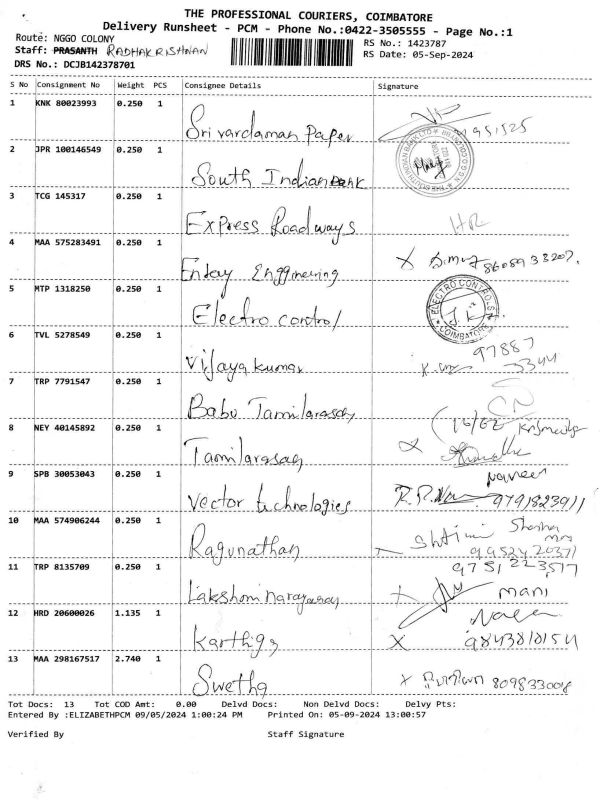 THE PROFESSIONAL COURIERS, COIMBATORE
Delivery Runsheet - PCM - Phone No.:0422-3505555 - Page No.:1
Route: NGGO COLONY
RS No.: 1423787
Staff: PRASANTH RADHAKRISHNAN
RS Date: 05-Sep-2024
DRS No.: DCJB142378701
S No Consignment No Weight PCS Consignee Details Signature
1 KNK 80023993 0.250 1 Sri vardaman Paper 951525
2 JPR 100146549 0.250 1 South Indian Bank
3 TCG 145317 0.250 1 Express Roadways HR
4 MAA 575283491 0.250 1 Enjay Engginnering X
5 MTP 1318250 0.250 1 Electro control ELECTRO CONTROLS COIMBATORE
6 TVL 5278549 0.250 1 Vijayakumar 97887
7 TRP 7791547 0.250 1 Babu Tamilarasan
8 NEY 40145892 0.250 1 Tamilarasan
9 SPB 30053043 0.250 1 Vector technologies Naveen 9791823911
10 MAA 574906244 0.250 1 Ragunathan
11 TRP 8135709 0.250 1 Lakshminarayanan 9751223517 mani
12 HRD 20600026 1.135 1 Karthiga X 9843810154
13 MAA 298167517 2.740 1 Swetha X
Tot Docs: 13 Tot COD Amt: 0.00 Delvd Docs: Non Delvd Docs: Delvy Pts:
Entered By :ELIZABETHPCM 09/05/2024 1:00:24 PM Printed On: 05-09-2024 13:00:57
Verified By Staff Signature